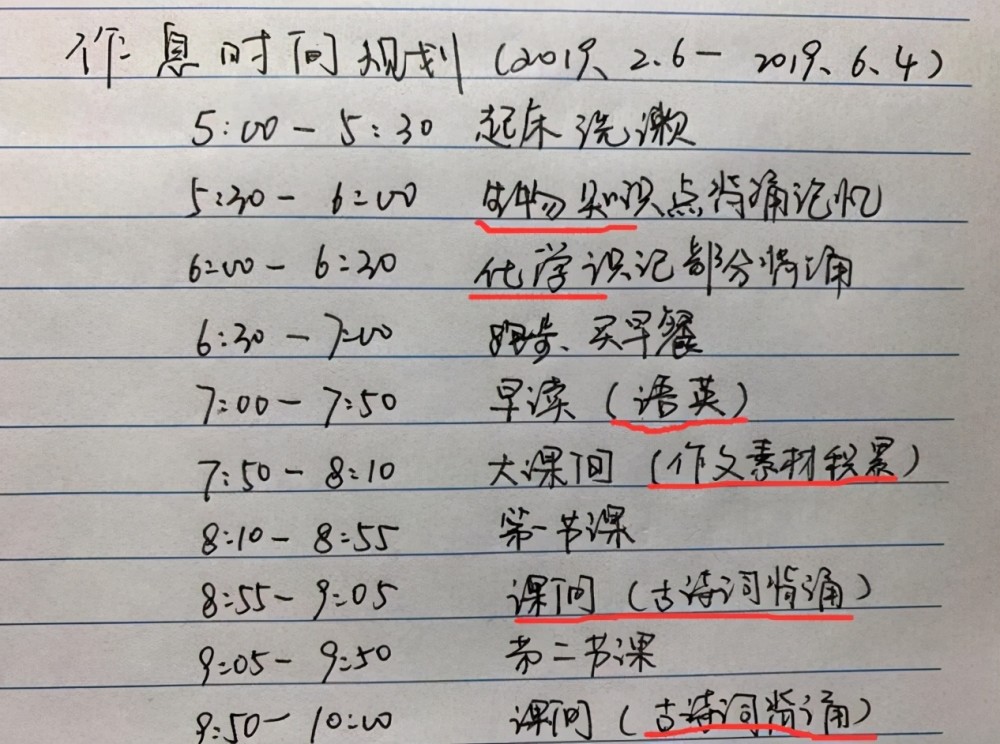 作息时间规划(2019、2.6-2019、6、4)
5:00-5:30 起床洗漱
5:30-6:00 生物知识点背诵记忆
6:00-6:30 化学识记部分背诵
6:30-7:00 跑步、买早餐
7:00-7:50 早读(语英)
7:50-8:10 大课间(作文素材积累)
8:10-8:55 第一节课
8:55-9:05 课间(古诗词背诵)
9:05-9:50 第二节课
9:50-10:00 课间(古诗词背诵)